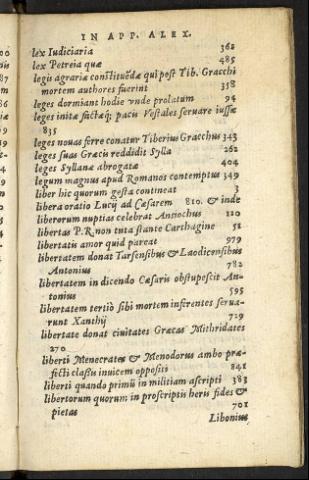 IN APP. ALEX.
lex Iudiciaria 362
lex Petreia quæ 485
legis agrariæ constituẽdæ qui post Tib. Gracchi
mortem authores fuerint 358
leges dormiant hodie vnde prolatum 94
leges initæ sũctæq; pacis Vestales seruare iussæ
835
leges nouas ferre conatur Tiberius Gracchus 343
leges suas Græcis reddidit Sylla 262
leges Syllanæ abrogatæ 404
legum magnus apud Romanos contemptus 349
liber hic quorum gesta contineat 3
libera oratio Lucij ad Cæsarem 810. & inde
liberorum nuptias celebrat Antiochus 120
libertas P.R. non tuta stante Carthagine 51
libertatis amor quid pareat 979
libertatem donat Tarsensibus & Laodicensibus
Antonius 782
libertatem in dicendo Cæsaris obstupescit An-
tonius 595
libertatem tertiò sibi mortem inferentes serua-
runt Xanthij 729
libertate donat ciuitates Græcas Mithridates
270
liberti Menecrates & Menodorus ambo præ-
fecti classiũ inuicem oppositi 841
liberti quando primũ in militiam ascripti 383
libertorum quorum in proscriptis heris fides &
pietas 701
Libonius